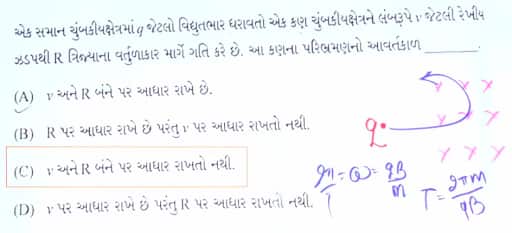 એક સમાન ચુંબકીયક્ષેત્રમાં q જેટલો વિદ્યુતભાર ધરાવતો એક કણ ચુંબકીયક્ષેત્રને લંબરૂપે v જેટલી રેખીય
ઝડપથી R ત્રિજ્યાના વર્તુળાકાર માર્ગે ગતિ કરે છે. આ કણના પરિભ્રમણનો આવર્તકાળ ________.
(A) v અને R બંને પર આધાર રાખે છે.
(B) R પર આધાર રાખે છે પરંતુ v પર આધાર રાખતો નથી.
(C) v અને R બંને પર આધાર રાખતો નથી.
(D) v પર આધાર રાખે છે પરંતુ R પર આધાર રાખતો નથી.
x x
q x x x
x x x
2π/T = ω = qB/m
T = 2πm/qB